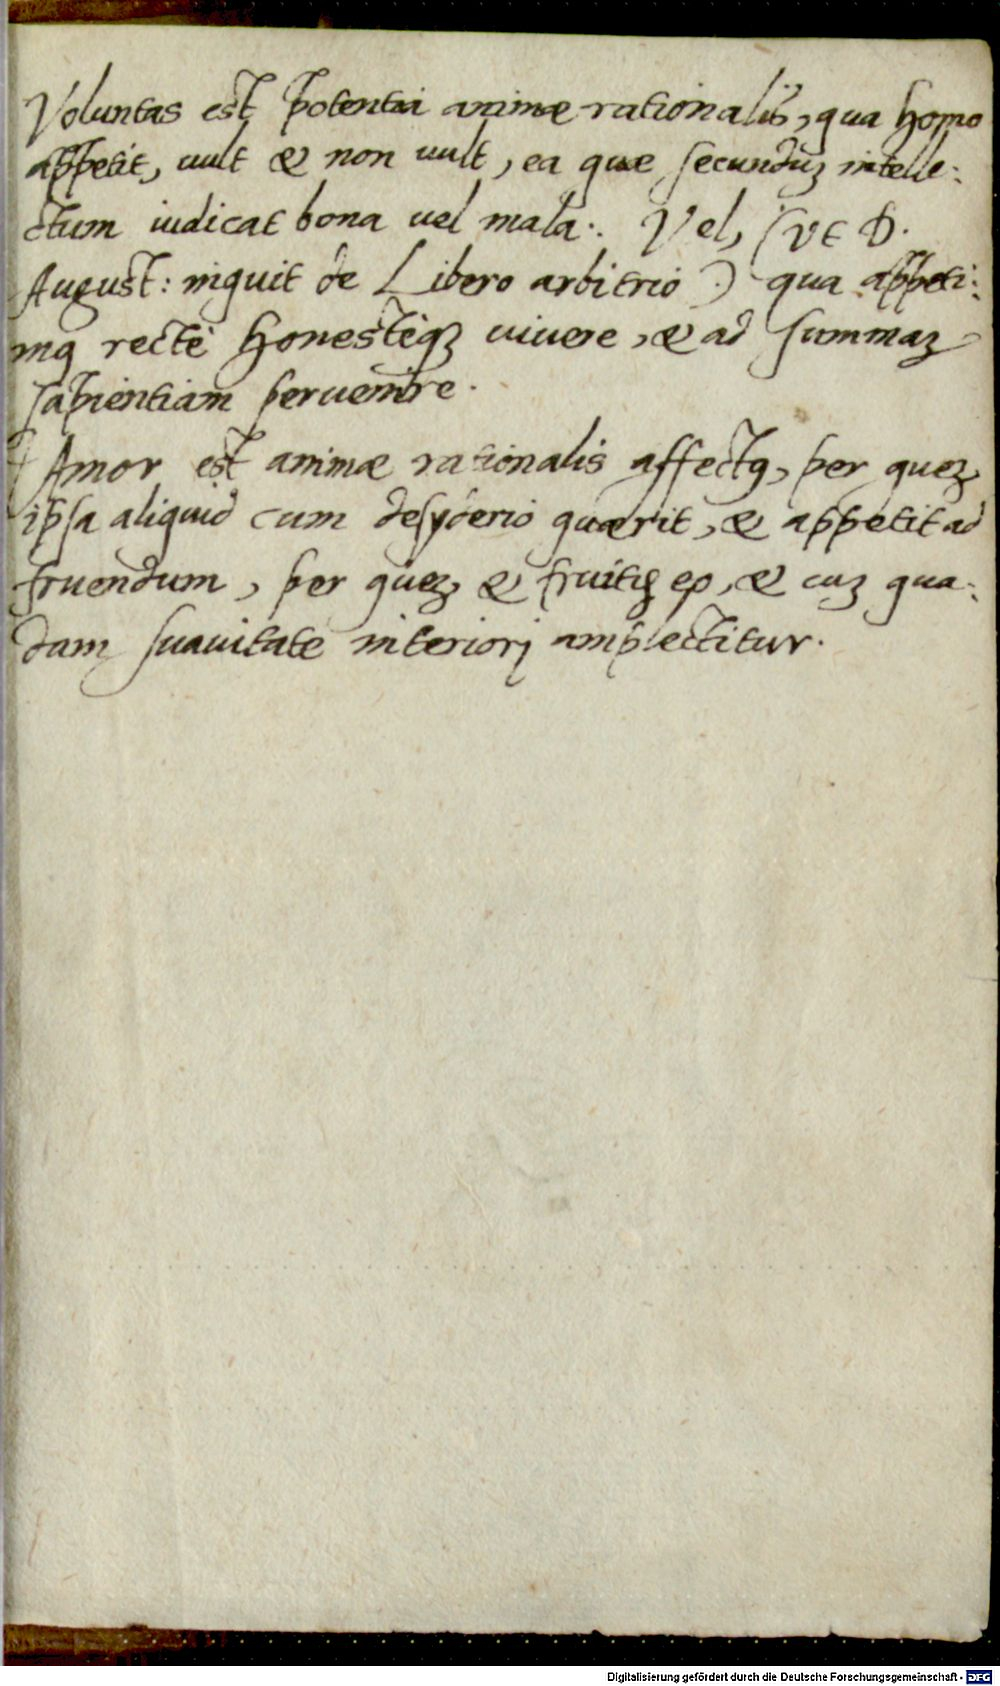 Voluntas est potentia animæ rationalis, qua homo
appetit, uult & non uult, ea quæ secunduꝫ intelle:
ctum iudicat bona uel mala:. Vel, (vt D.
August: inquit de Libero arbitrio.) qua appeti:
mꝯ rectè honestèqꝫ uiuere, & ad summaꝫ
sapientiam peruenire.
Amor est animæ rationalis affectꝯ, per queꝫ
ipsa aliquid cum desyderio quærit, & appetit ad
fruendum, per queꝫ & fruitꝯ eo, & cuꝫ qua:
dam suauitate interiorj amplectitur.
Digitalisierung gefördert durch die Deutsche Forschungsgemeinschaft - DFG